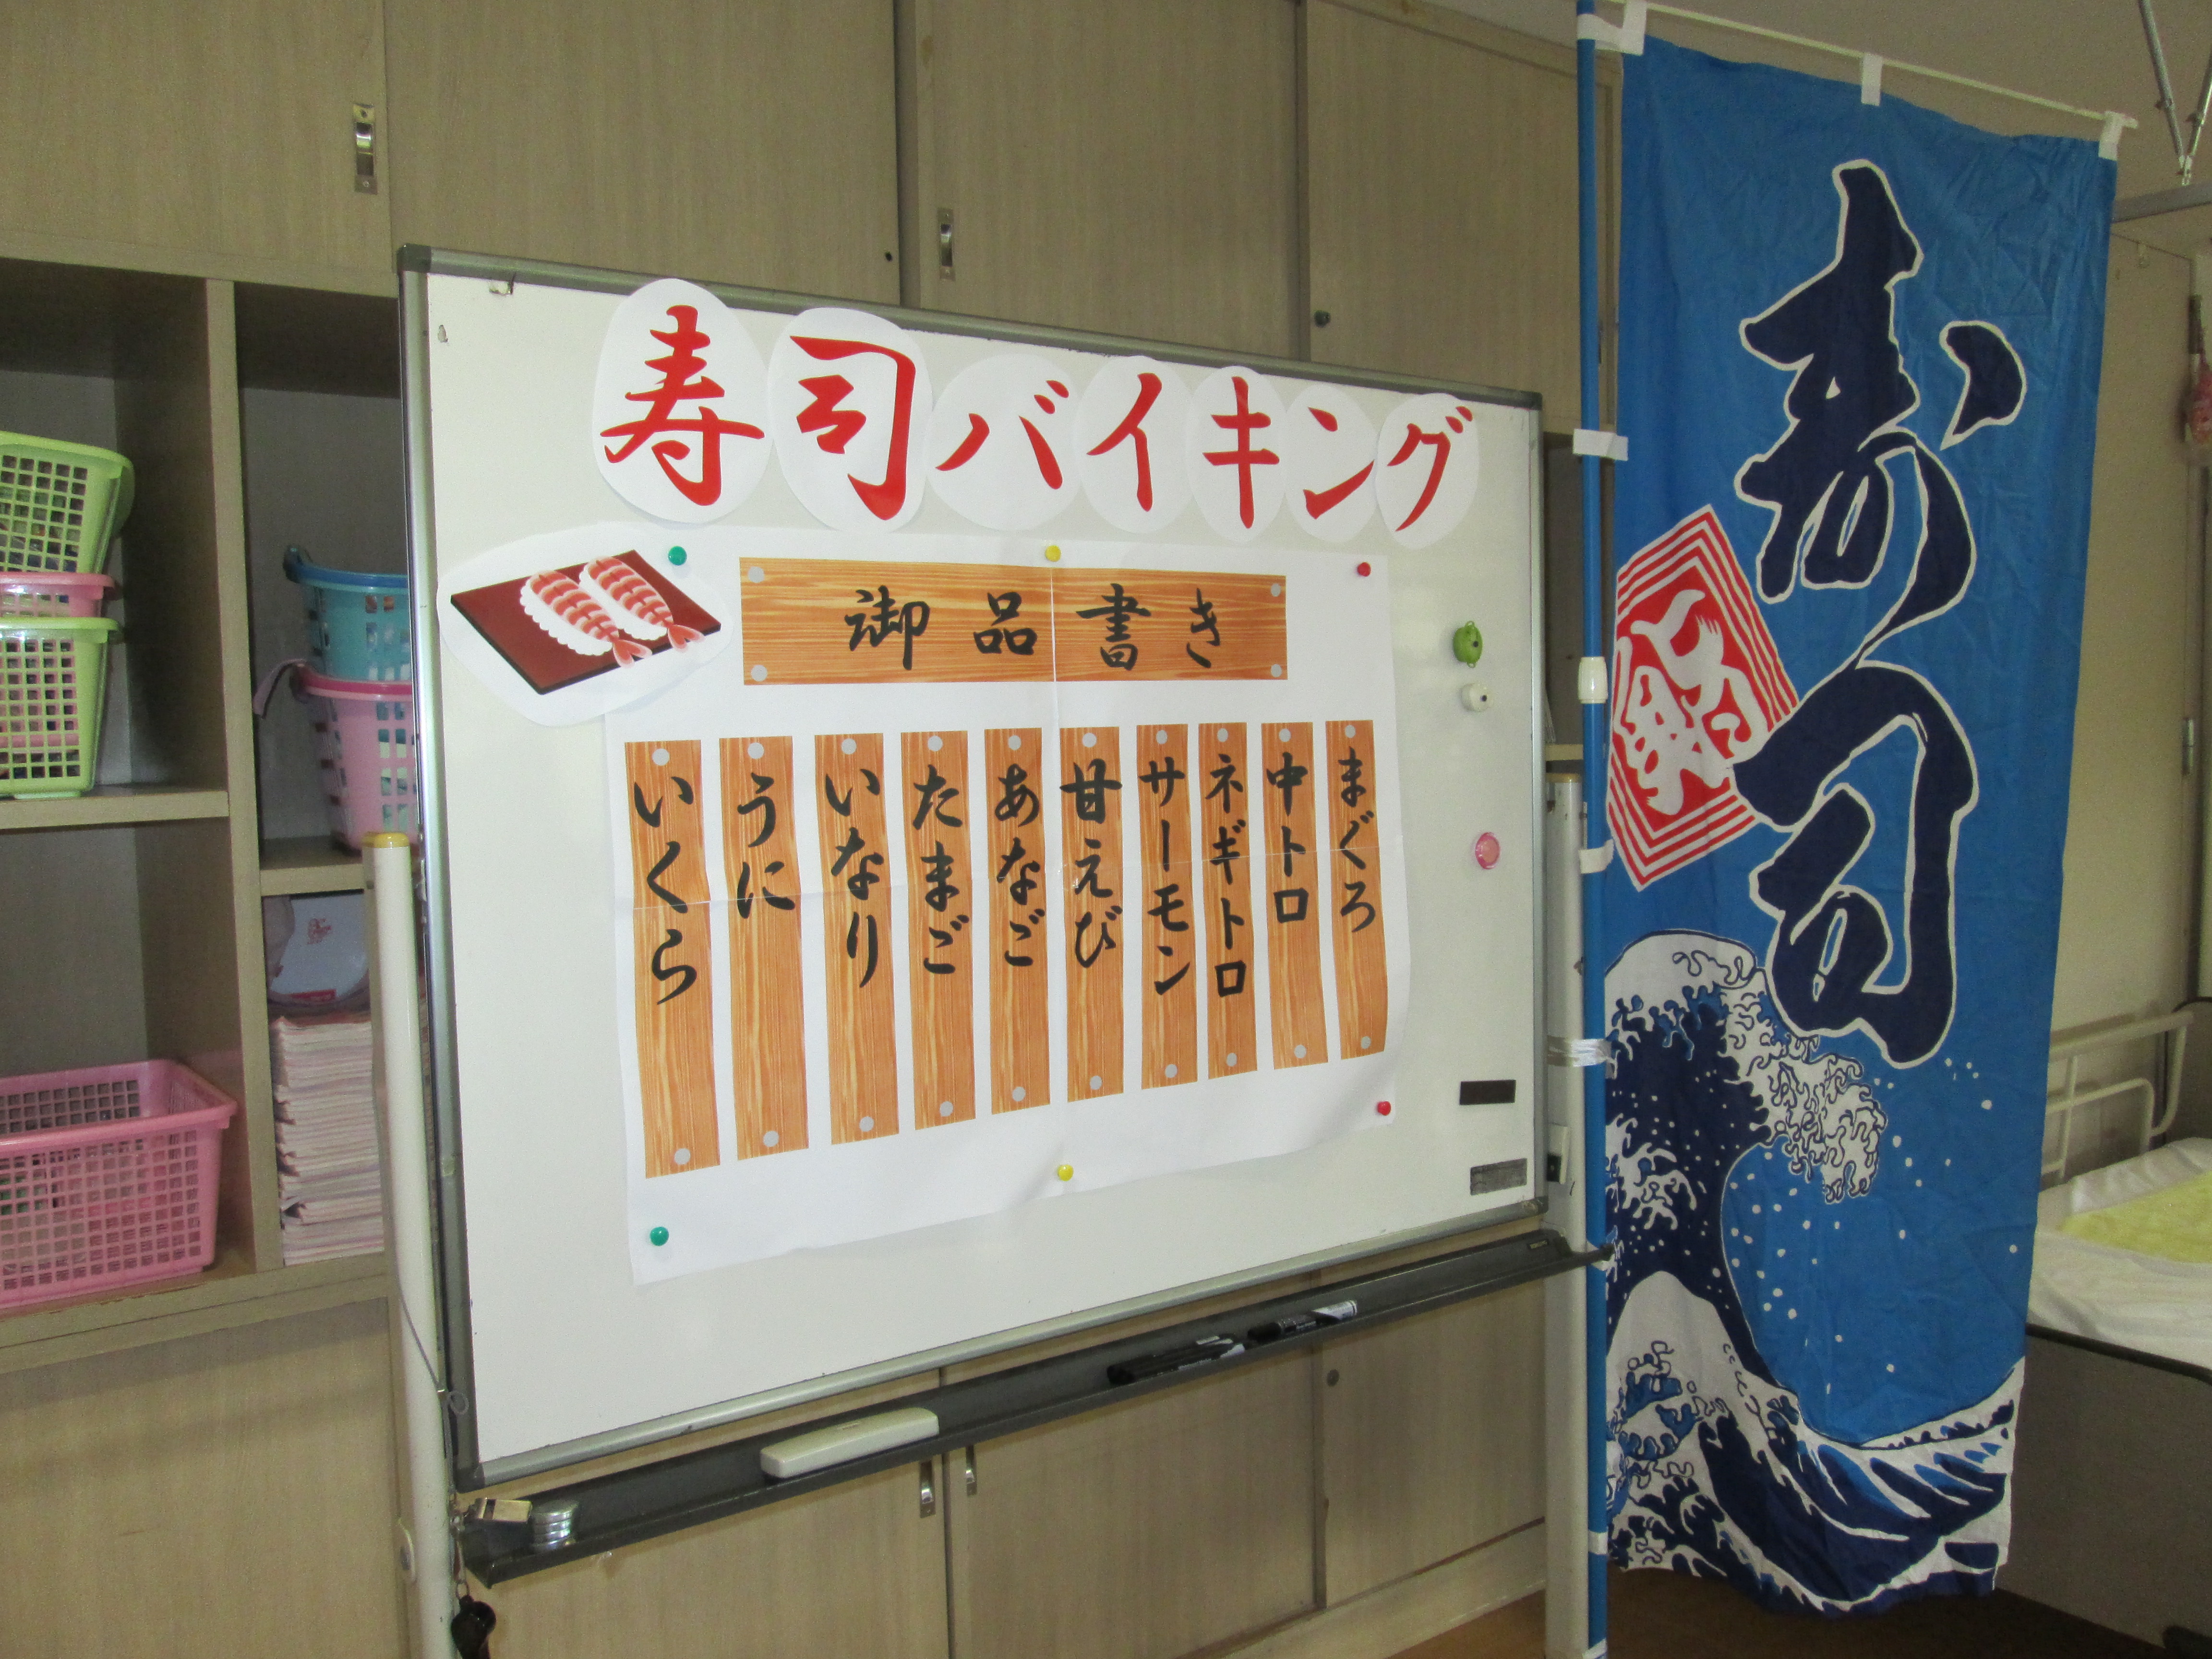 寿司バイキング
御品書き
まぐろ
中トロ
ネギトロ
サーモン
甘えび
あなご
たまご
いなり
うに
いくら
お寿司